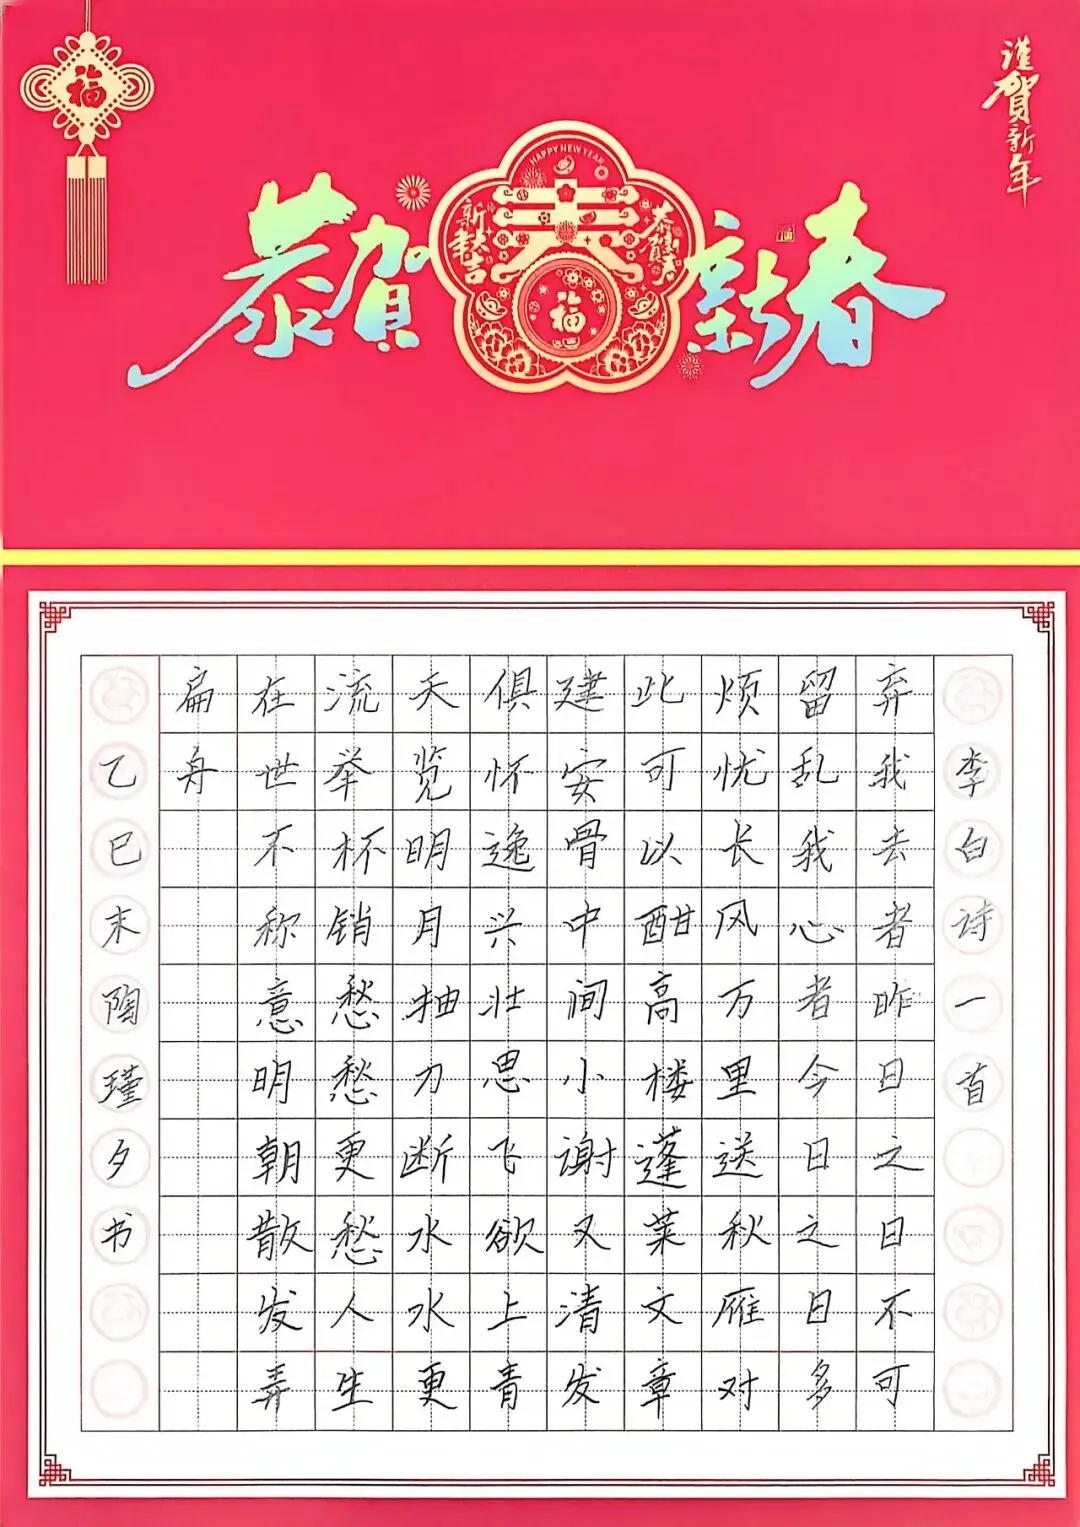 福
謹賀新年
恭賀新春
HAPPY NEW YEAR
春
福
李白诗一首
弃我去者昨日之日不可
留乱我心者今日之日多
烦忧长风万里送秋雁对
此可以酣高楼蓬莱文章
建安骨中间小谢又清发
俱怀逸兴壮思飞欲上青
天览明月抽刀断水水更
流举杯销愁愁更愁人生
在世不称意明朝散发弄
扁舟
乙巳末陶瑾夕书